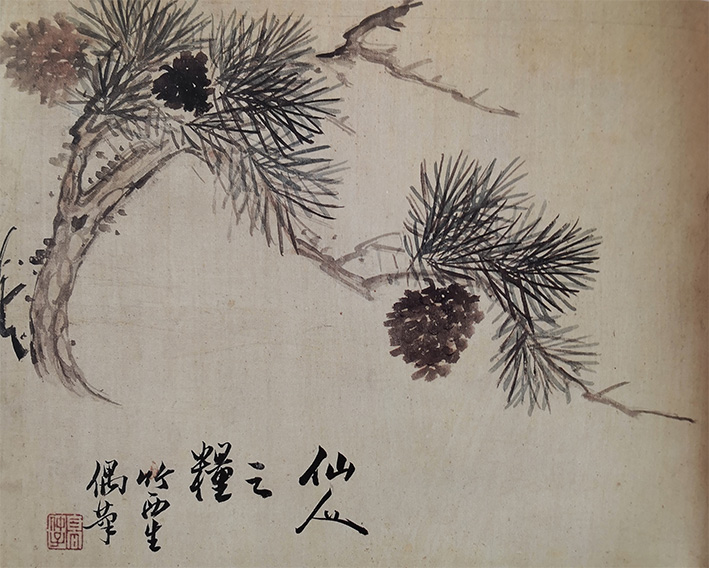 仙人
之
糧
竹西生
偶筆